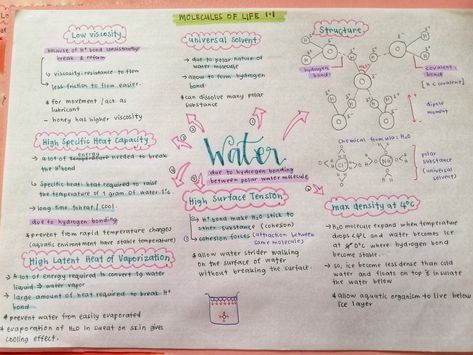 MOLECULES OF LIFE 1.1
Low viscosity
because of H⁺ bond constantly
break & reform
→ viscosity: resistance to flow
less friction to flow easier.
→ for movement / act as
lubricant
- honey has higher viscosity
universal solvent
→ due to polar nature of
water molecule
→ allow to form hydrogen
bond
→ can dissolve many polar
substance
Structure
hydrogen
bond
covalent
bond
(H < covalent)
dipole
moment
chemical formula: H₂O
polar
substance
(universal
solvent)
Water
due to hydrogen bonding
between polar water molecule
High Specific Heat Capacity
→ a lot of energy needed to break
the H⁺ bond
→ specific heat required to raise
the temperature of 1 gram of water 1°C
→ long time to heat / cool.
due to hydrogen bonding
→ prevent from rapid temperature changes
(aquatic environment have stable temperature)
High Latent Heat of Vaporization
→ A lot of energy required to convert
liquid → water vapor
→ large amount of heat required to break H⁺
bond
→ prevent water from easily evaporated
→ evaporation of H₂O in sweat on skin gives
cooling effect.
High Surface Tension
→ H⁺ bond make H₂O stick to
other substance (cohesion)
→ cohesion forces (attraction between
same molecules)
→ allow water strider walking
on the surface of water
without breaking the surface
max density at 4°C
→ H₂O molecule expand when temperature
drops <4°C and water becomes ice
at 0°C where hydrogen bond
become stable.
→ so, ice become less dense than cold
water and floats on top & insulate
the water below
→ allow aquatic organism to live below
ice layer